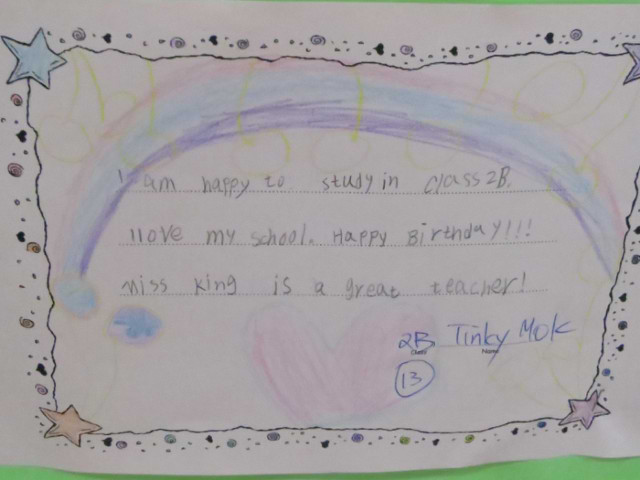 I am happy to study in class 2B.
I love my school. Happy Birthday!!!
Miss King is a great teacher!
2B Tinky Mok
Class Name
13